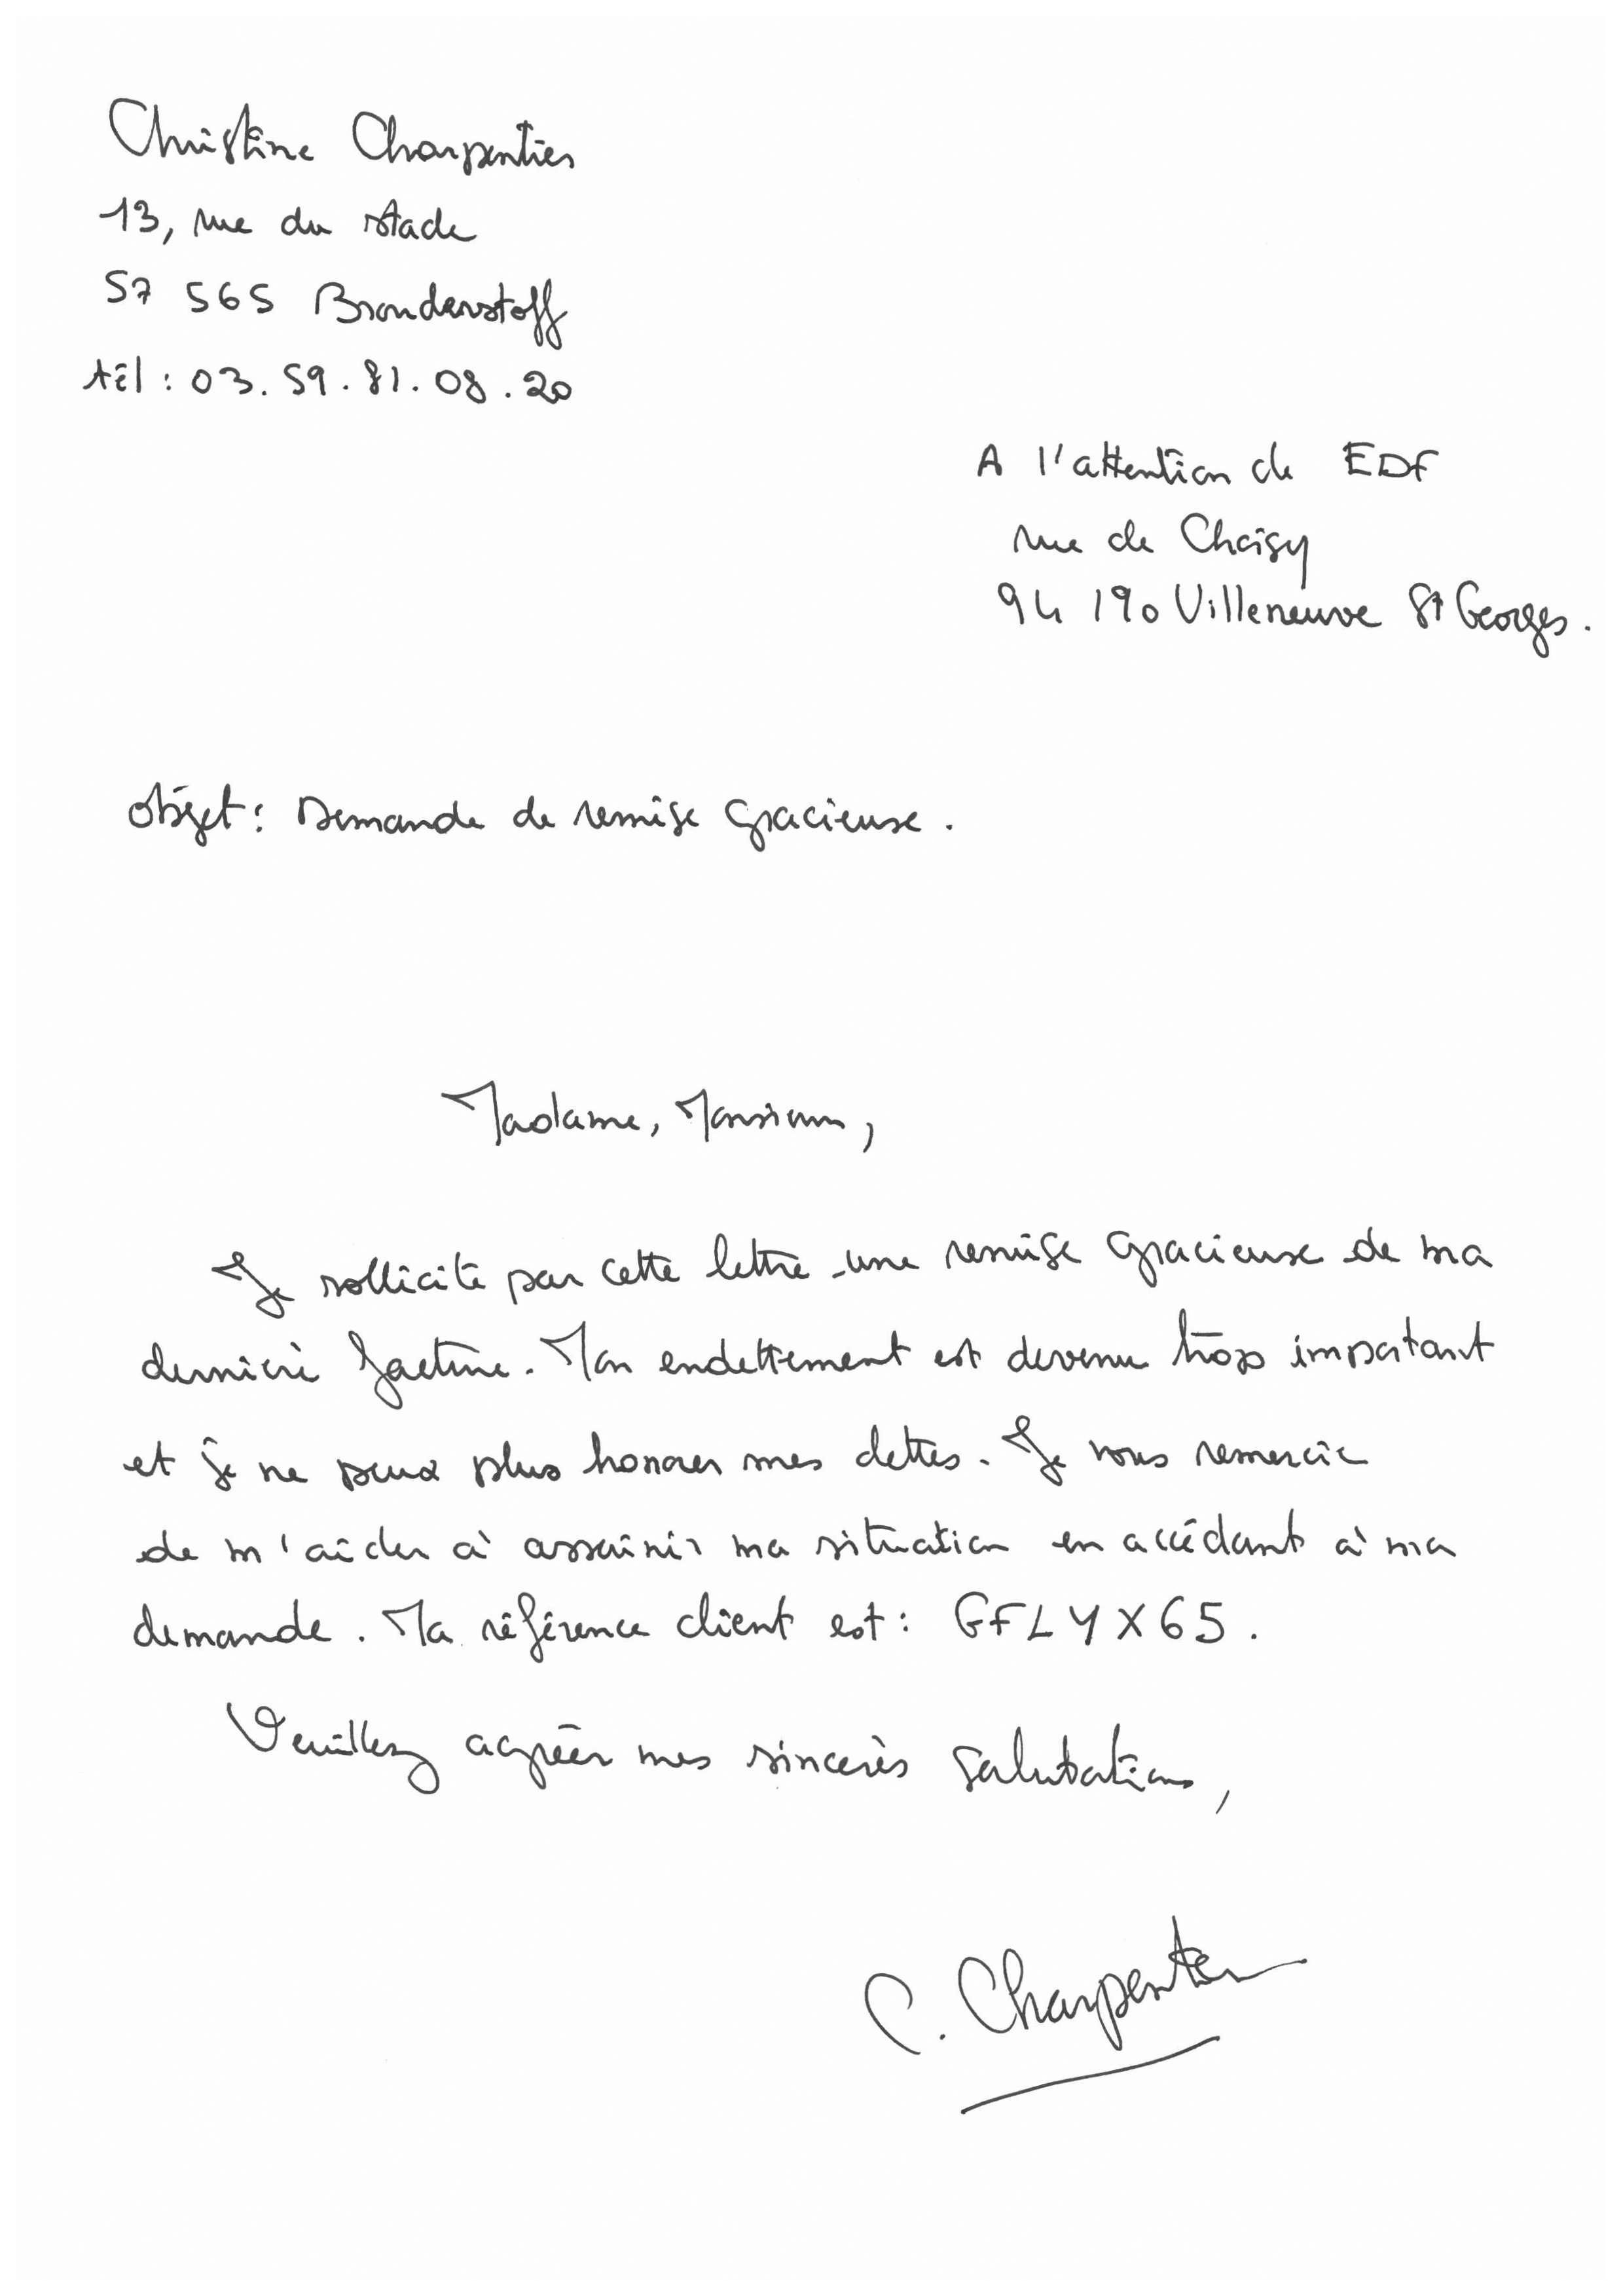 Christine Charpentier
13, rue du stade
57 565 Brandenstoff
tél : 03.59.81.08.20
A l'attention de EDF
rue de Choisy
94 190 Villeneuve St Georges.
Objet : Demande de remise gracieuse.
Madame, Monsieur,
Je sollicite par cette lettre une remise gracieuse de ma
dernière facture. Mon endettement est devenu trop important
et je ne peux plus honorer mes dettes. Je vous remercie
de m'aider à assainir ma situation en accédant à ma
demande. Ma référence client est : GFLYX65.
Veuillez agréer mes sincères salutations,
C. Charpentier